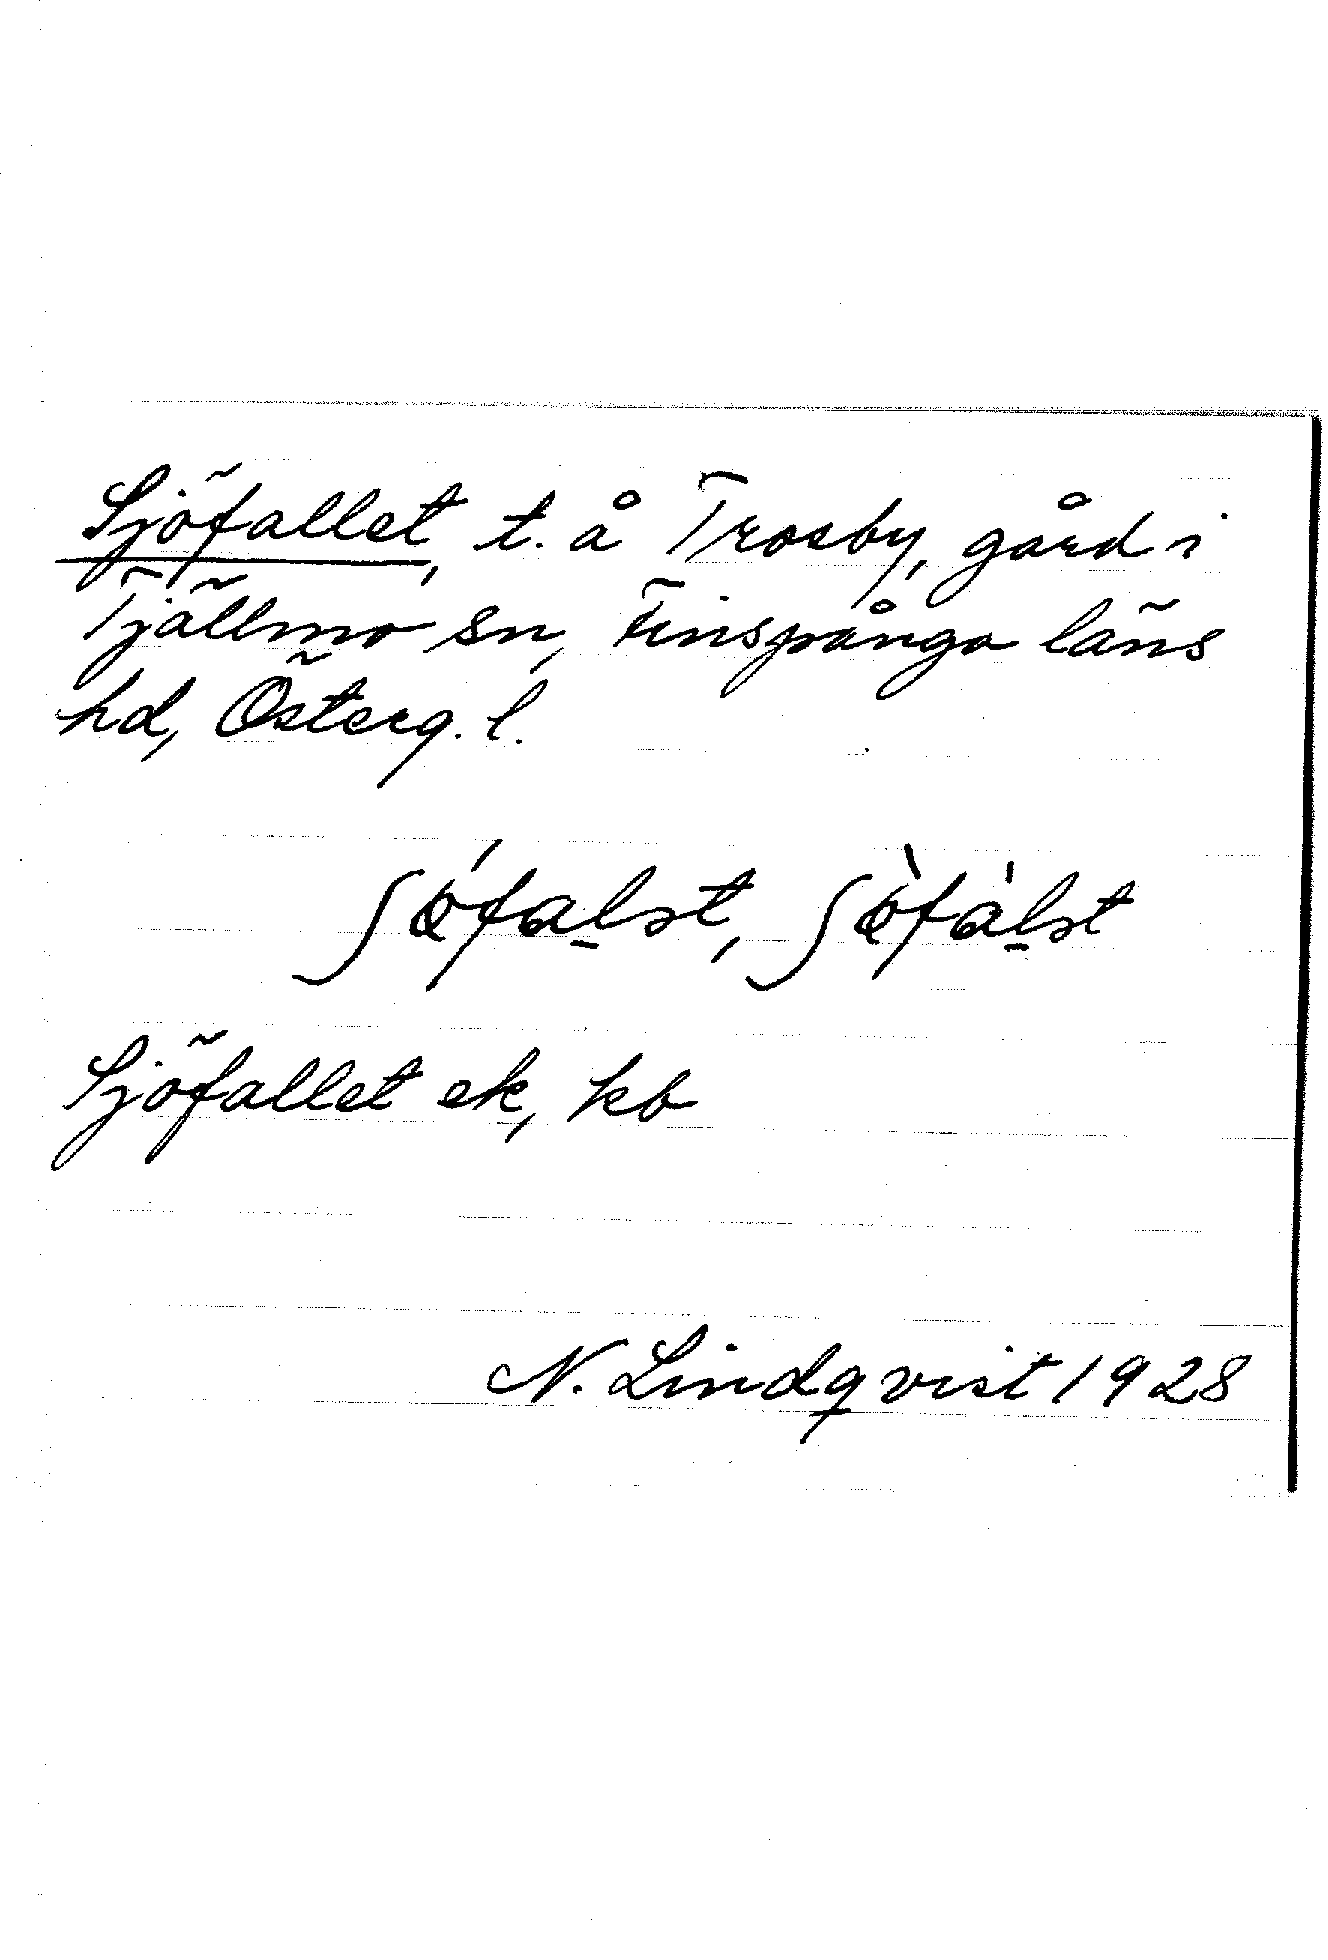 Sjöfallet, t. å Trosby, gård i
Tjällmo sn, Finspånga läns
hd, Österg. l.
ʃǿfalst, ʃø̀fàlst
Sjöfallet ek, kb
N. Lindqvist 1928